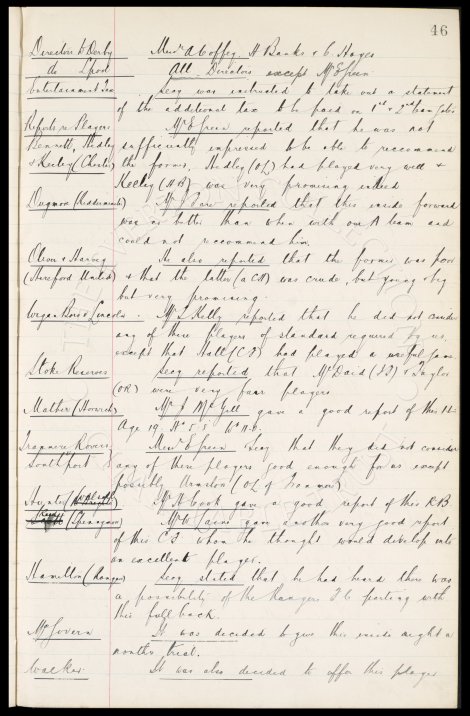 46
Directors to Derby Messrs A Coffey, H Banks & C. Hayes
do L'pool All Directors except Mr E Green
Entertainment Tax Secy was instructed to take out a statement
of the additional tax to be paid on 1st & 2nd team gates
Reports re Players Mr E Green reported that he was not
Bennett, Hedley sufficiently impressed to be able to recommend
& Keeley (Chester) the former. Hedley (OL) had played very well &
Keeley (HB) was very promising indeed
(Kidderminster) reported that this inside forward
was no better than when with our A team and
could not recommend him.
Oliver & Harvey He also reported that the former was poor
(Hereford United) & that the latter (a CH) was crude, but young & big
but very promising.
Wigan Boro v Lincoln. Mr L Kelly reported that he did not consider
any of these Players of standard required by us,
except that Hall (CF) had played a useful game
Stoke Reserves Secy reported that McDaid & Taylor
(OR) were very fair players
Mather (Horwich) Mr J McGill gave a good report of this
Age 19. Ht 5. 8
Tranmere Rovers Messrs E Green Secy that they did not consider
Southport any of these players good enough for us except
possibly Urmston (OL of Tranmere)
Hunter Mr H Cook gave a good report of this RB
(Spennymoor) Mr W Cains gave another very good report
of this CF whom he thought would develop into
an excellent player.
Hamilton (Rangers) Secy stated that he had heard there was
a possibility of the Rangers F.C. parting with
this full back.
McGovern It was decided to give this inside right a
months trial.
Walker It was also decided to offer this player